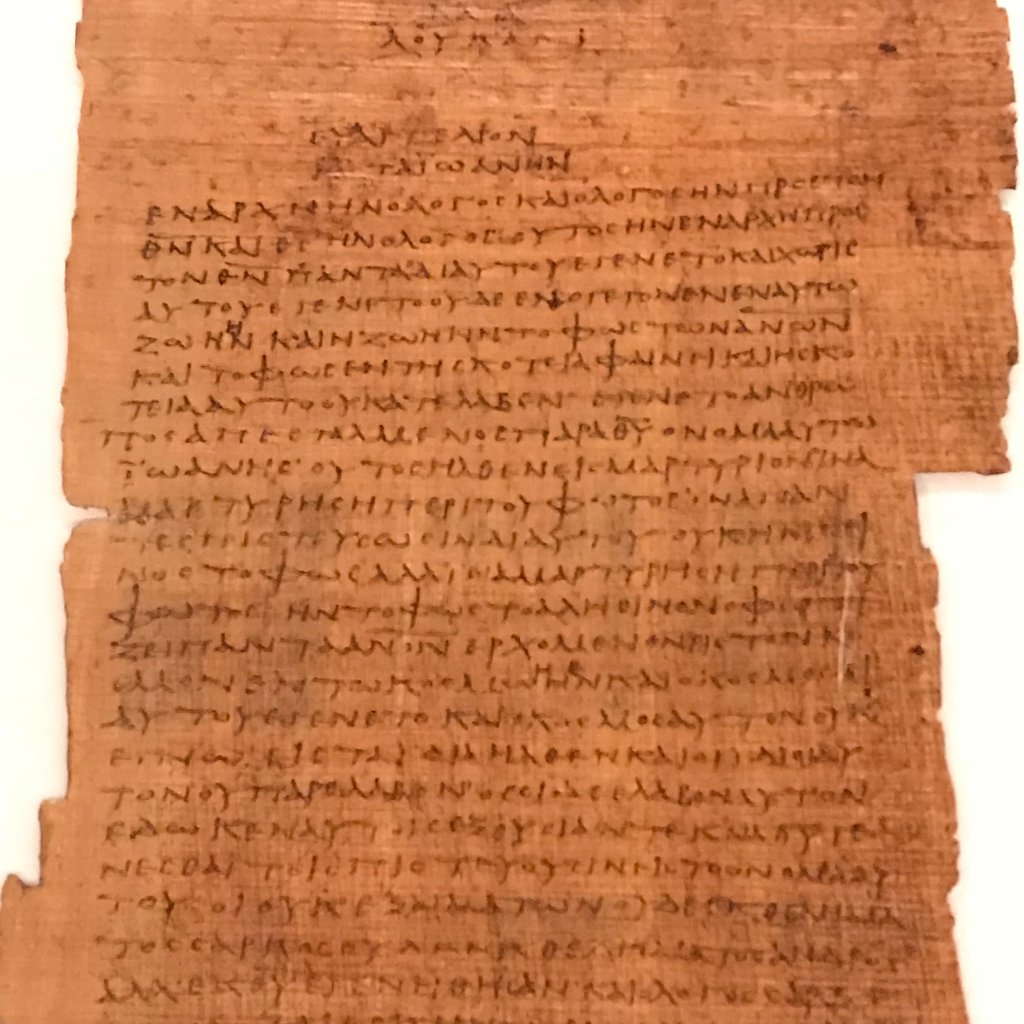 ΛΟΥΚΑΝ
ΕΥΑΓΓΕΛΙΟΝ
ΚΑΤΑ ΙΩΑΝΗΝ
ΕΝ ΑΡΧΗ ΗΝ Ο ΛΟΓΟΣ ΚΑΙ Ο ΛΟΓΟΣ ΗΝ ΠΡΟΣ ΤΟΝ
ΘΝ ΚΑΙ ΘΣ ΗΝ Ο ΛΟΓΟΣ ΟΥΤΟΣ ΗΝ ΕΝ ΑΡΧΗ ΠΡΟΣ
ΤΟΝ ΘΝ ΠΑΝΤΑ ΔΙ ΑΥΤΟΥ ΕΓΕΝΕΤΟ ΚΑΙ ΧΩΡΙΣ
ΑΥΤΟΥ ΕΓΕΝΕΤΟ ΟΥΔΕ ΕΝ Ο ΓΕΓΟΝΕΝ ΕΝ ΑΥΤΩ
ΖΩΗ ΗΝ ΚΑΙ Η ΖΩΗ ΗΝ ΤΟ ΦΩΣ ΤΩΝ ΑΝΩΝ
ΚΑΙ ΤΟ ΦΩΣ ΕΝ ΤΗ ΣΚΟΤΕΙΑ ΦΑΙΝΕΙ ΚΑΙ Η ΣΚΟ
ΤΕΙΑ ΑΥΤΟ ΟΥ ΚΑΤΕΛΑΒΕΝ ΕΓΕΝΕΤΟ ΑΝΘΡΩ
ΠΟΣ ΑΠΕΣΤΑΛΜΕΝΟΣ ΠΑΡΑ ΘΥ ΟΝΟΜΑ ΑΥΤΩ
ΪΩΑΝΗΣ ΟΥΤΟΣ ΗΛΘΕΝ ΕΙΣ ΜΑΡΤΥΡΙΟΝ ΪΝΑ
ΜΑΡΤΥΡΗΣΗ ΠΕΡΙ ΤΟΥ ΦΩΤΟΣ ΪΝΑ ΠΑΝ
ΤΕΣ ΠΙΣΤΕΥΣΩΣΙΝ ΔΙ ΑΥΤΟΥ ΟΥΚ ΗΝ ΕΚΕΙ
ΝΟΣ ΤΟ ΦΩΣ ΑΛΛ ΙΝΑ ΜΑΡΤΥΡΗΣΗ ΠΕΡΙ ΤΟΥ
ΦΩΤΟΣ ΗΝ ΤΟ ΦΩΣ ΤΟ ΑΛΗΘΙΝΟΝ Ο ΦΩΤΙ
ΖΕΙ ΠΑΝΤΑ ΑΝΟΝ ΕΡΧΟΜΕΝΟΝ ΕΙΣ ΤΟΝ Κ
ΣΜΟΝ ΕΝ ΤΩ ΚΟΣΜΩ ΗΝ ΚΑΙ Ο ΚΟΣΜΟΣ ΔΙ
ΑΥΤΟΥ ΕΓΕΝΕΤΟ ΚΑΙ Ο ΚΟΣΜΟΣ ΑΥΤΟΝ ΟΥΚ
ΕΓΝΩ ΕΙΣ ΤΑ ΙΔΙΑ ΗΛΘΕΝ ΚΑΙ ΟΙ ΙΔΙΟΙ ΑΥ
ΤΟΝ ΟΥ ΠΑΡΕΛΑΒΟΝ ΟΣΟΙ ΔΕ ΕΛΑΒΟΝ ΑΥΤΟΝ
ΕΔΩΚΕΝ ΑΥΤΟΙΣ ΕΞΟΥΣΙΑΝ ΤΕΚΝΑ ΘΥ ΓΕ
ΝΕΣΘΑΙ ΤΟΙΣ ΠΙΣΤΕΥΟΥΣΙΝ ΕΙΣ ΤΟ ΟΝΟΜΑ ΑΥ
ΤΟΥ ΟΙ ΟΥΚ ΕΞ ΑΙΜΑΤΩΝ ΟΥΔΕ ΕΚ ΘΕΛΗΜΑ
ΤΟΣ ΣΑΡΚΟΣ ΟΥΔΕ ΕΚ ΘΕΛΗΜΑΤΟΣ ΑΝΔΡΟΣ
ΑΛΛΑ ΕΚ ΘΥ ΕΓΕΝΗΘΗΣΑΝ ΚΑΙ Ο ΛΟΓΟΣ ΣΑΡΞ